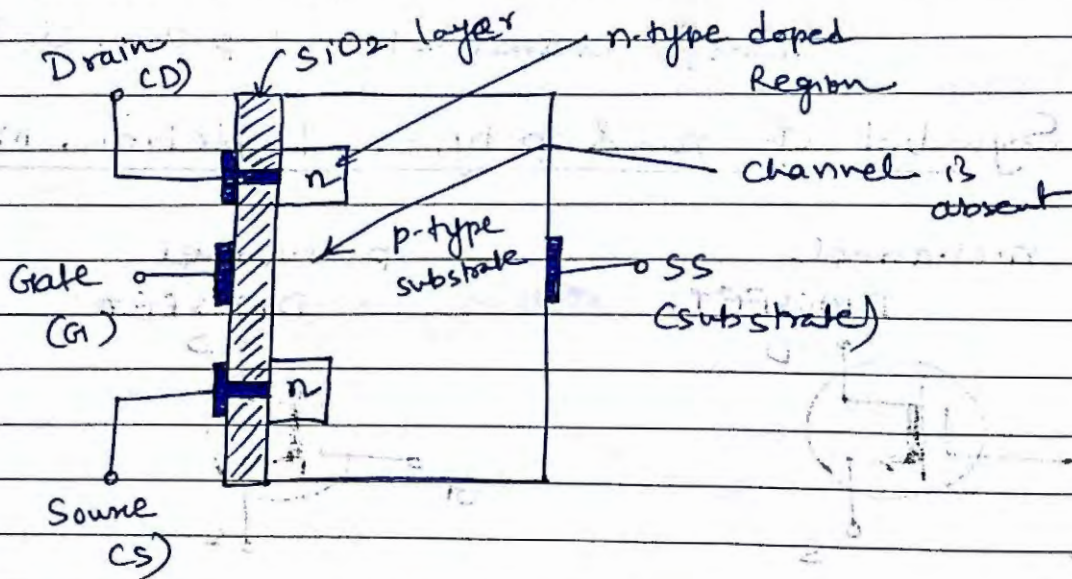 Drain
(D)
SiO2 layer
n-type doped
Region
n
channel is
absent
p-type
substrate
Gate
(G)
SS
(Substrate)
n
Source
(S)